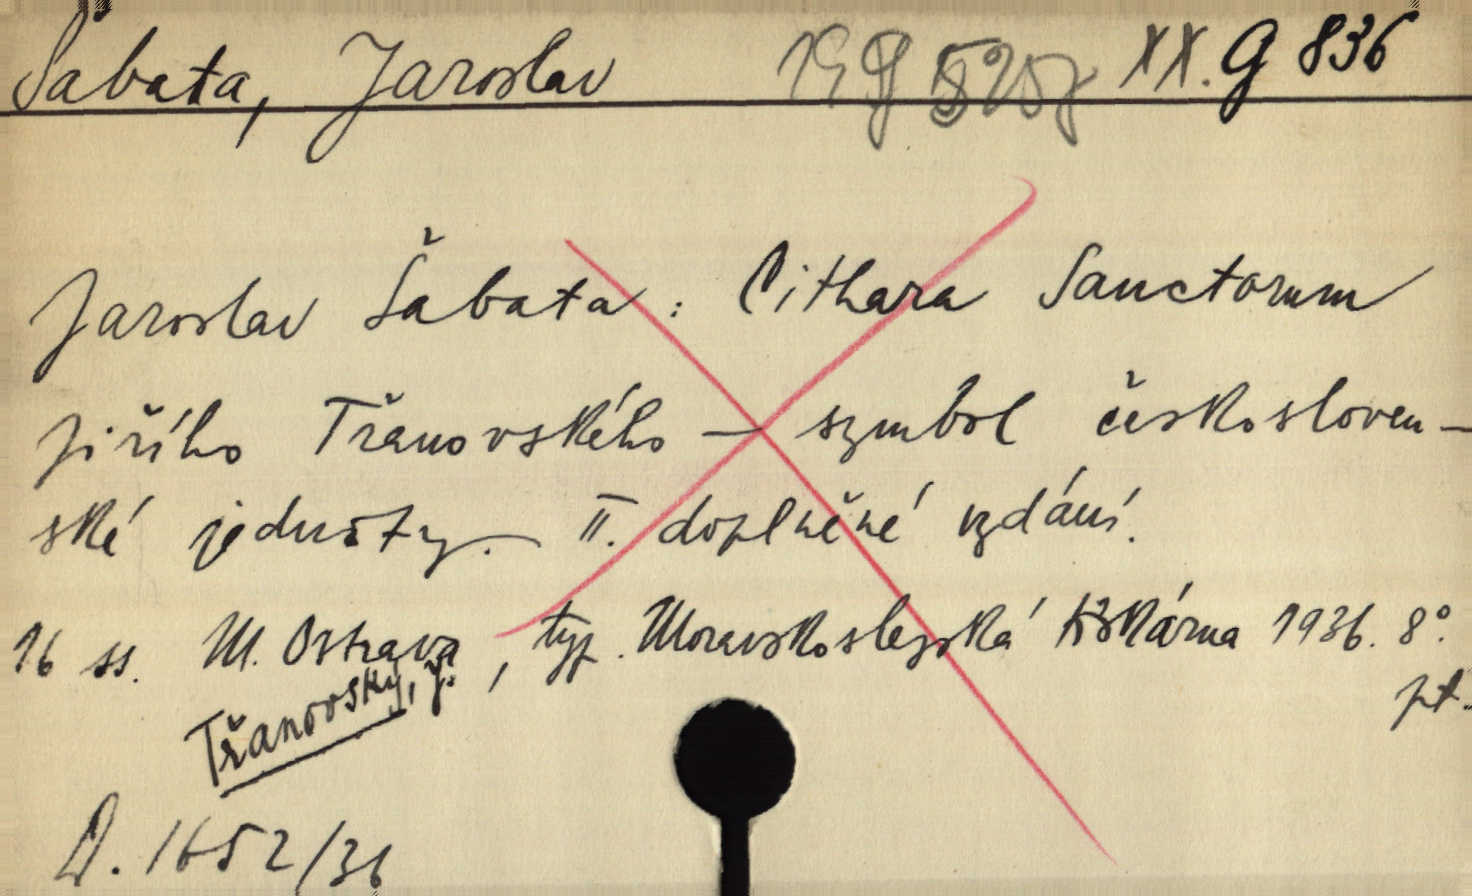 Šabata, Jaroslav XX.G 836
Jaroslav Šabata: Cithara Sanctorum
Jiřího Třanovského — symbol českosloven-
ské jednoty. II. doplněné vydání.
16 ss. M. Ostrava, typ. Moravskoslezská tiskárna 1936. 8°.
pt.
Třanovský, J.
D. 1652/36